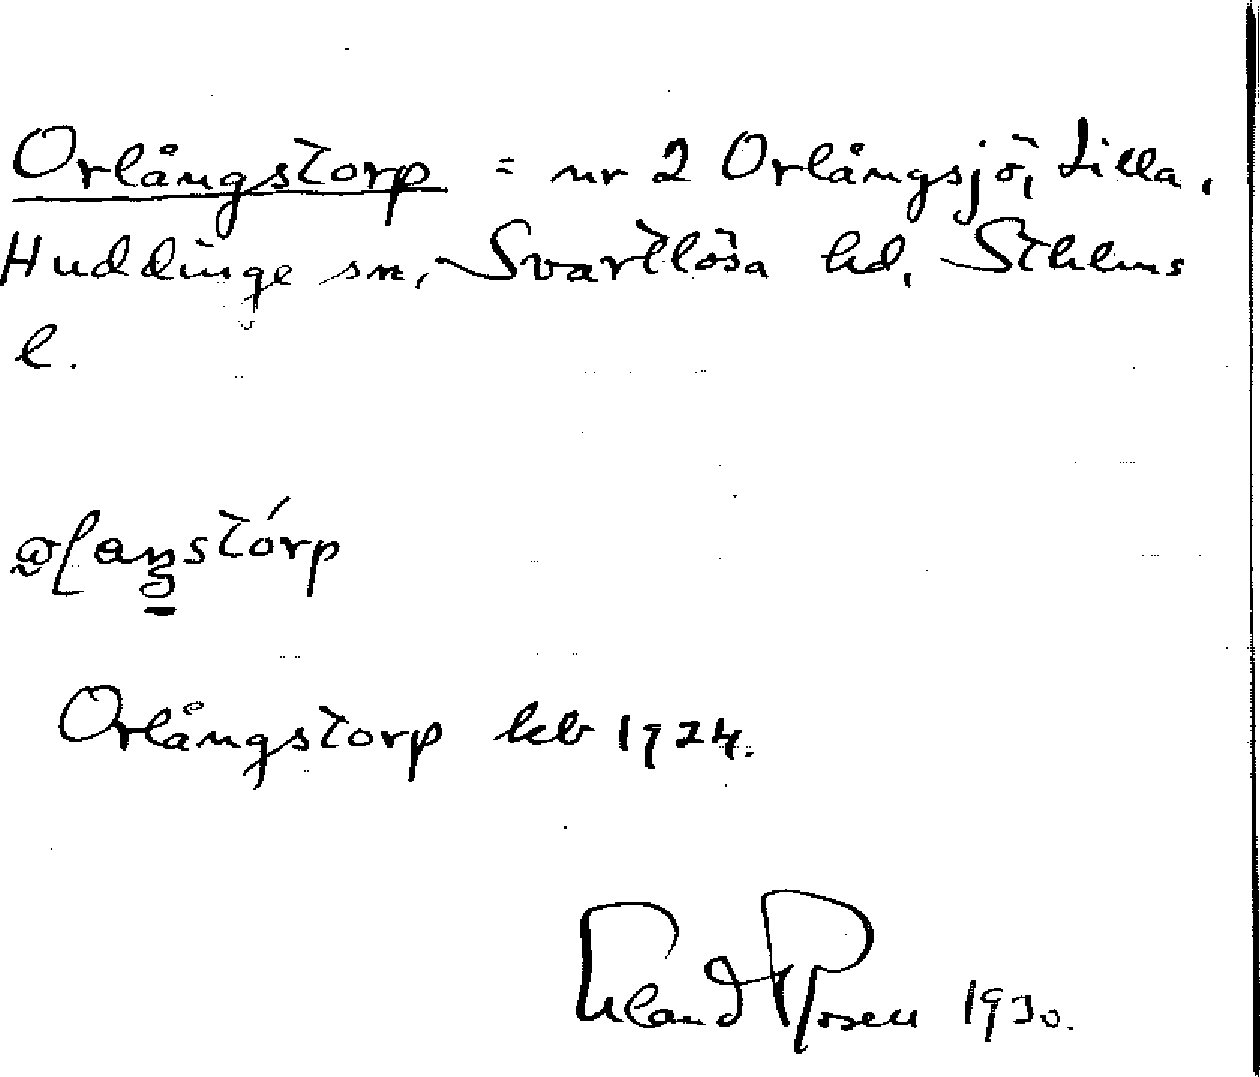 Orlångstorp = nr 2 Orlångsjö, Lilla,
Huddinge sn, Svartlösa hd, Sthlms
l.
Orlångstorp kb 1924.
Erland Rosell 1930.